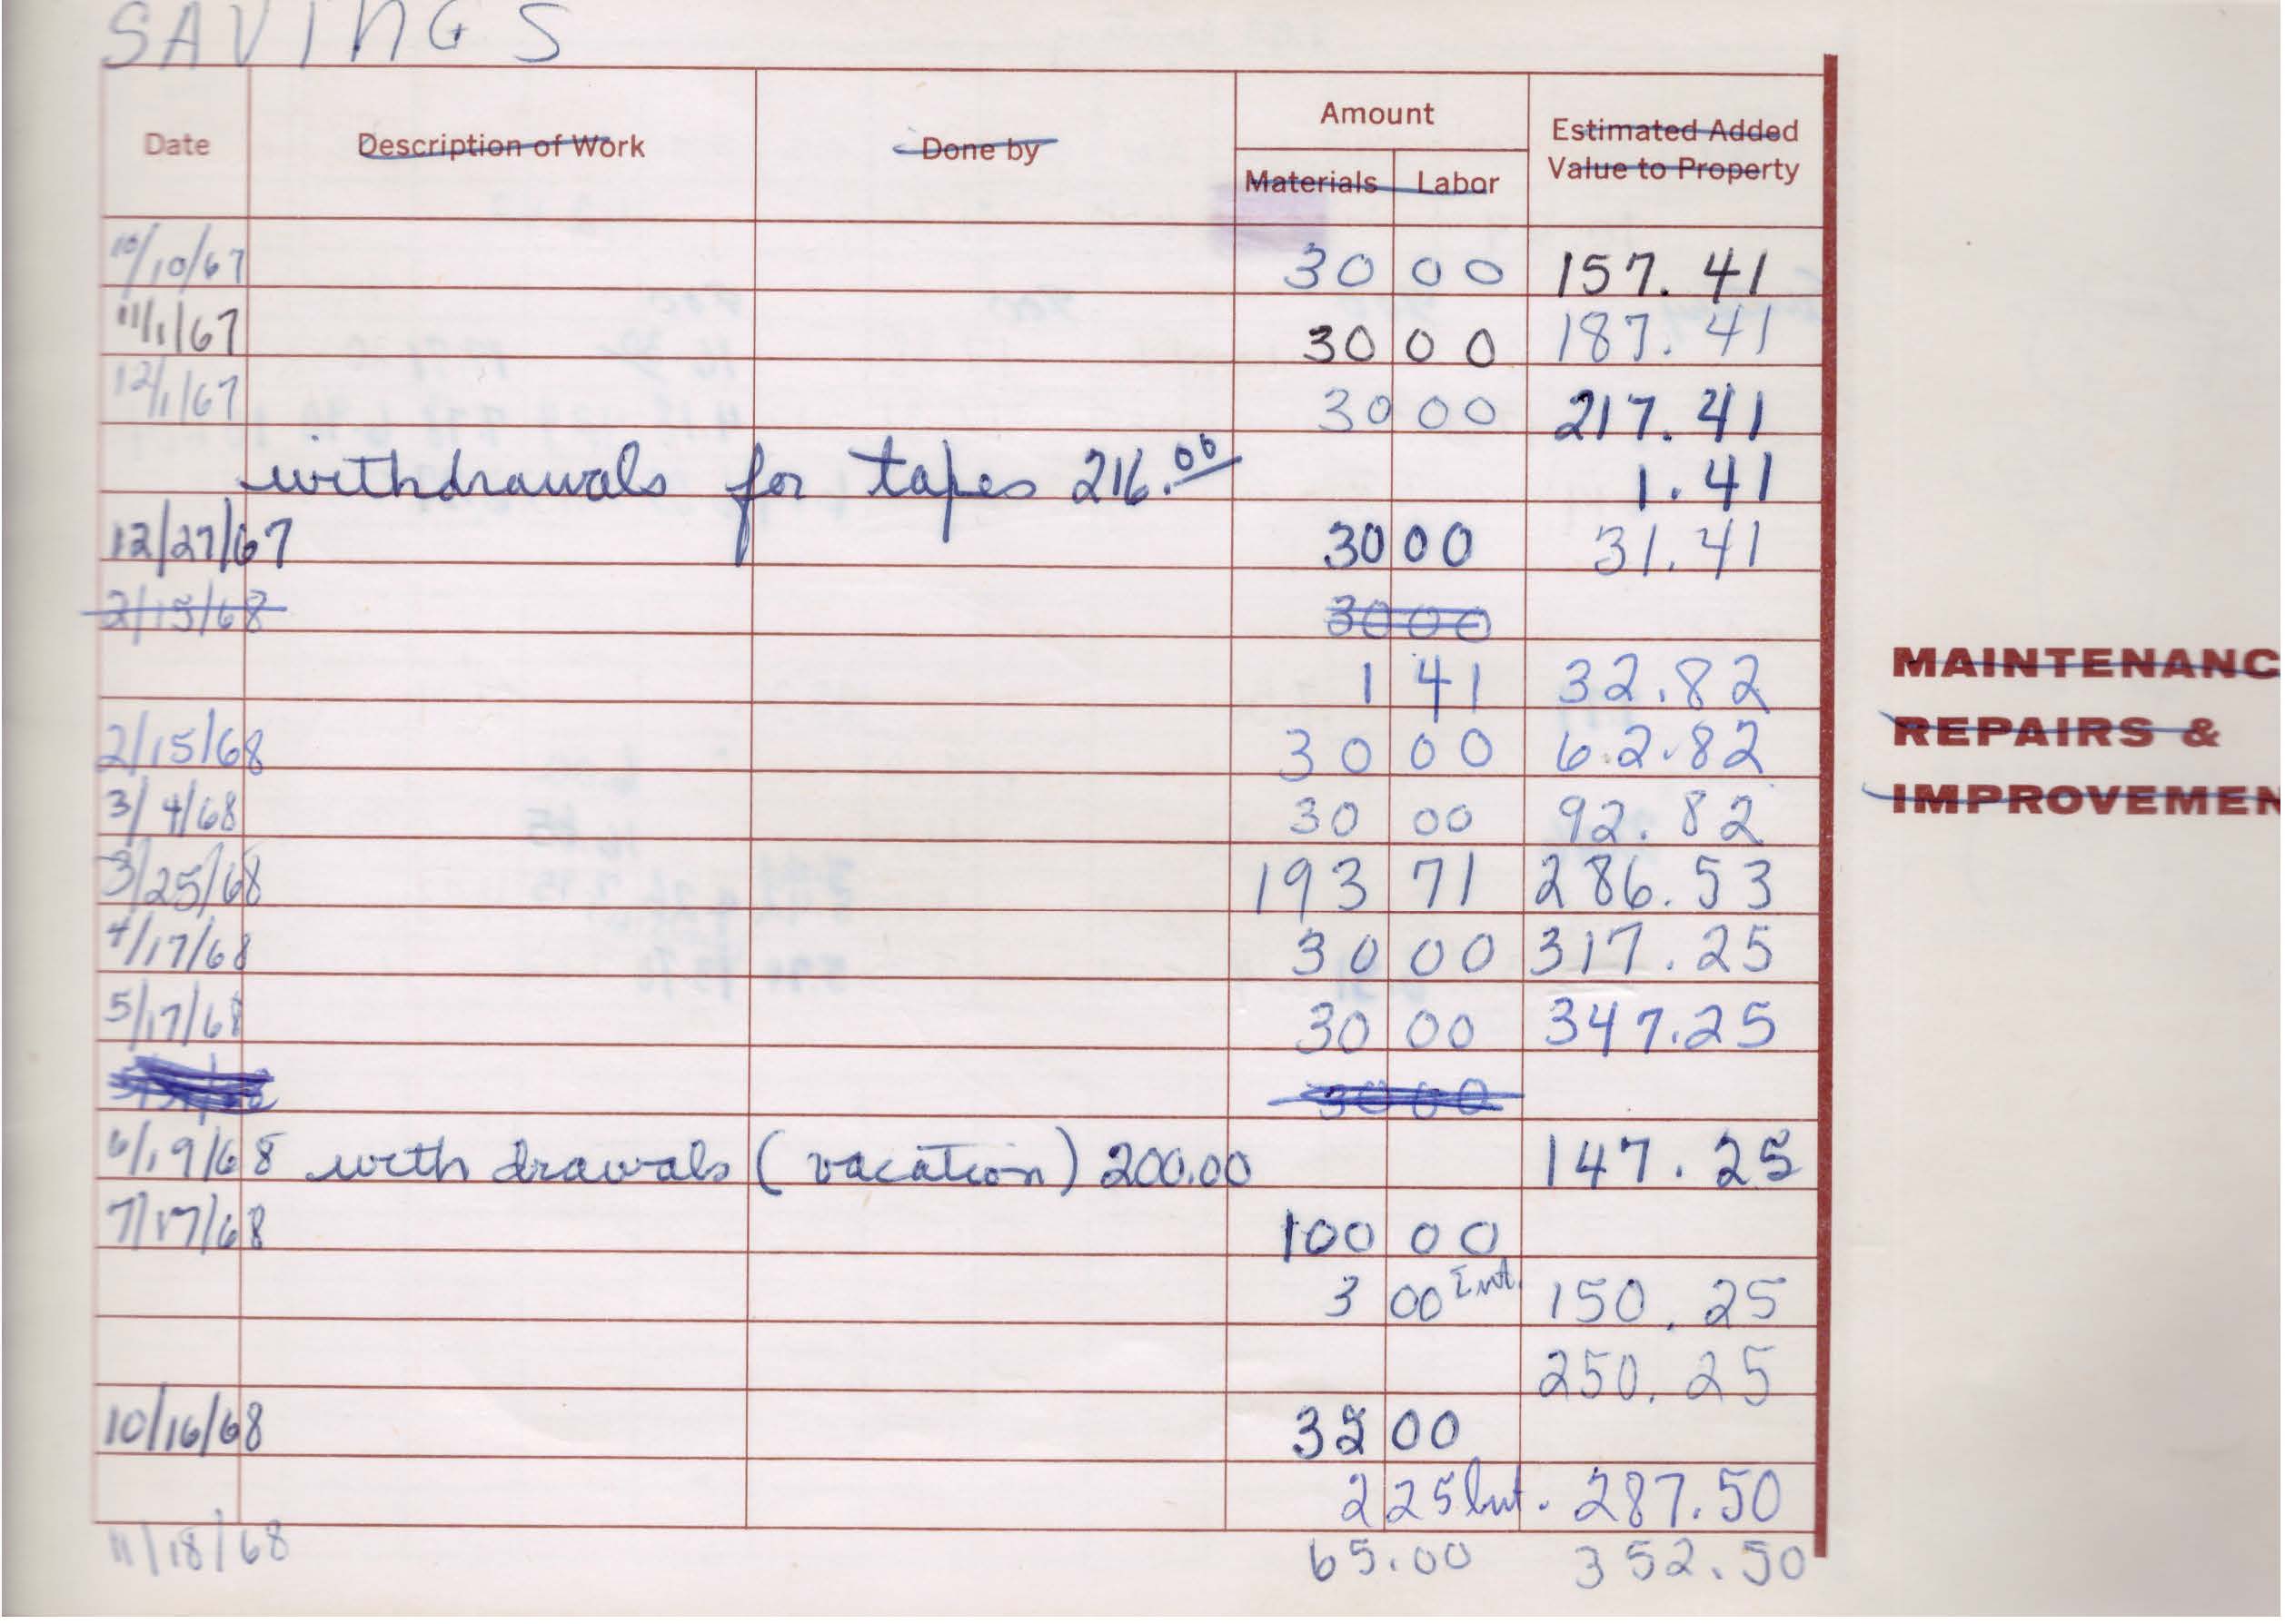 SAVINGS
Date Description of Work Done by Amount Estimated Added
Value to Property
Materials Labor
10/10/67 30 00 157.41
11/1/67 30 00 187.41
12/1/67 30 00 217.41
withdrawals for tapes 216.00 1.41
12/27/67 30 00 31.41
2/15/68 30 00
1 41 32.82
2/15/68 30 00 62.82
3/4/68 30 00 92.82
3/25/68 193 71 286.53
4/17/68 30 00 317.25
5/17/68 30 00 347.25
30 00
6/19/68 withdrawals (vacation) 200.00 147.25
7/17/68 100 00
3 00 Int. 150.25
250.25
10/16/68 35 00
2 25 Int. 287.50
11/18/68 65.00 352.50
MAINTENANC
REPAIRS &
IMPROVEMEN